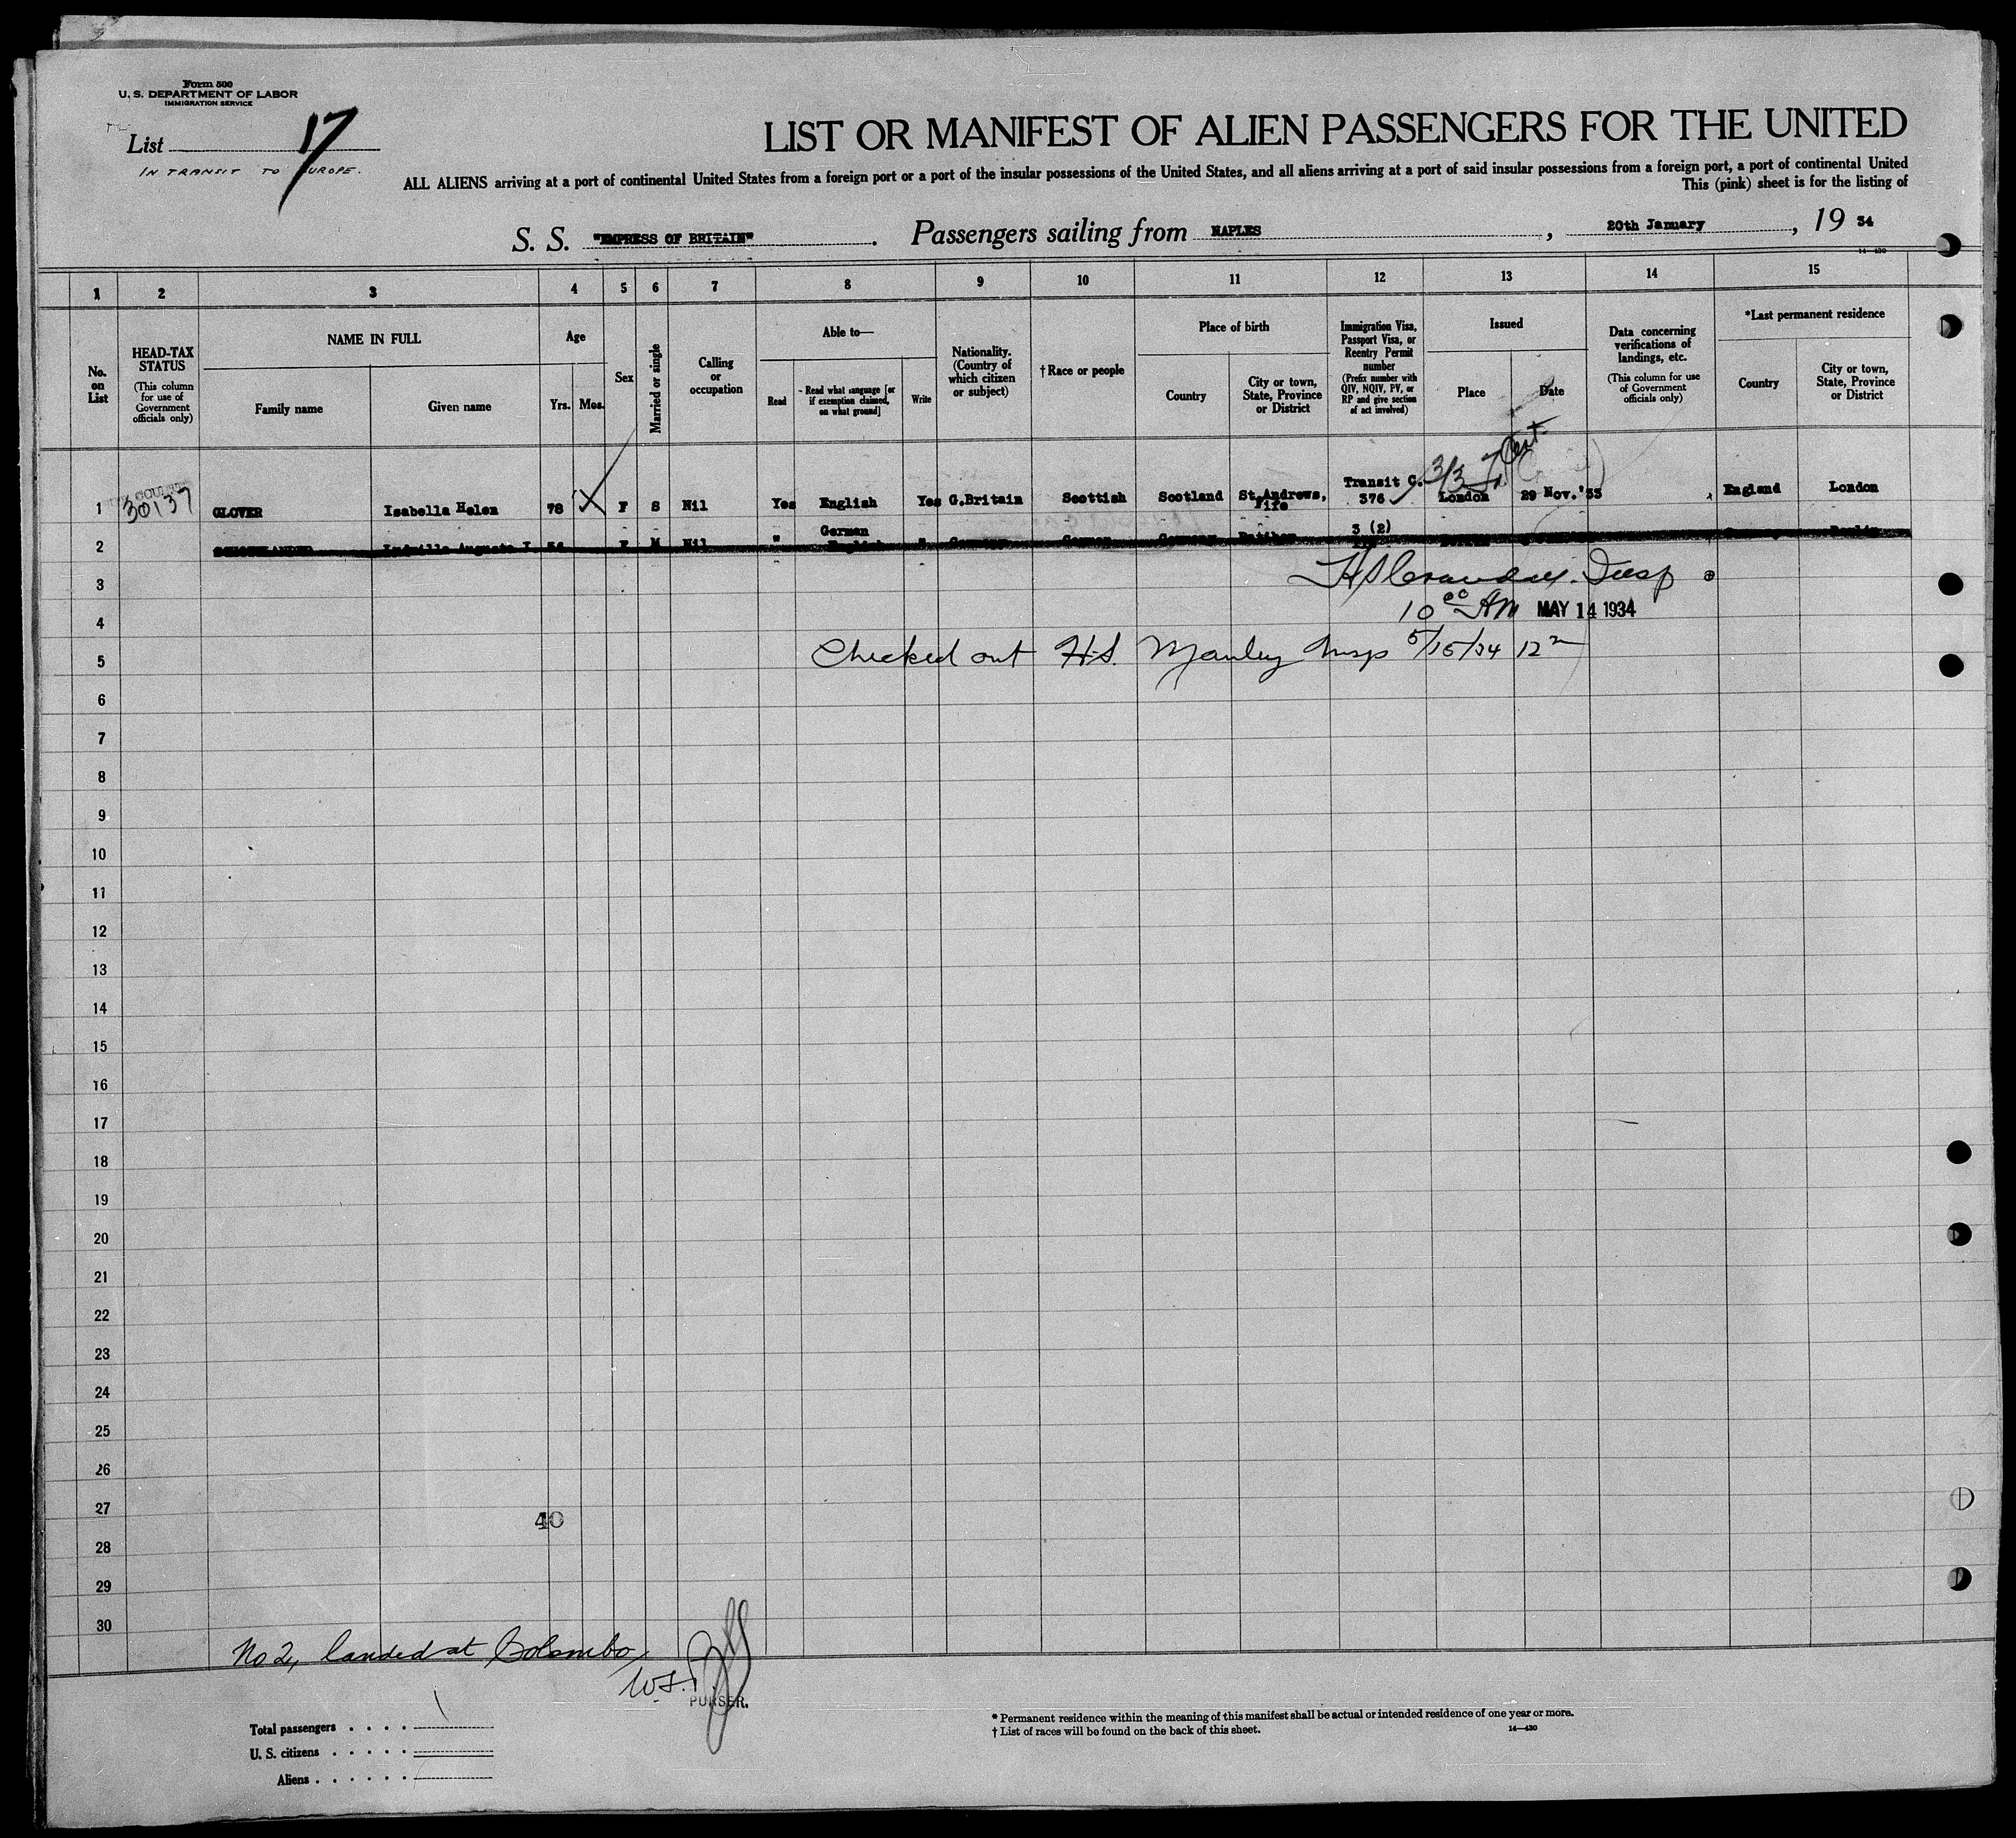 Form 500
U. S. DEPARTMENT OF LABOR
IMMIGRATION SERVICE
List 17
IN TRANSIT TO EUROPE.
LIST OR MANIFEST OF ALIEN PASSENGERS FOR THE UNITED
ALL ALIENS arriving at a port of continental United States from a foreign port or a port of the insular possessions of the United States, and all aliens arriving at a port of said insular possessions from a foreign port, a port of continental United
This (pink) sheet is for the listing of
S. S. "EMPRESS OF BRITAIN". Passengers sailing from NAPLES, 20th January, 19 34
14—430
1 2 3 4 5 6 7 8 9 10 11 12 13 14 15
No. on List
HEAD-TAX STATUS
(This column for use of Government officials only)
NAME IN FULL
Family name
Given name
Age
Yrs.
Mos.
Sex
Married or single
Calling or occupation
Able to—
Read
Read what language [or if exemption claimed, on what ground]
Write
Nationality. (Country of which citizen or subject)
†Race or people
Place of birth
Country
City or town, State, Province or District
Immigration Visa, Passport Visa, or Reentry Permit number
(Prefix number with QIV, NQIV, PV, or RP and give section of act involved)
Issued
Place
Date
Data concerning verifications of landings, etc.
(This column for use of Government officials only)
*Last permanent residence
Country
City or town, State, Province or District
3/3
1 30137 GLOVER Isabella Helen 78 X F S Nil Yes English Yes G.Britain Scottish Scotland St.Andrews, Fife Transit C. 376 London 29 Nov.'33 England London
2 Ludmilla Auguste I 54 F M Nil " German English " Germany German Germany Ratibor 3 (2) Berlin
3 Insp
4 10 00 AM MAY 14 1934
5 Checked out H.S. Manley Insp 5/15/34 12
6
7
8
9
10
11
12
13
14
15
16
17
18
19
20
21
22
23
24
25
26
27
40
28
29
30
No 2, landed at Colombo
PURSER.
Total passengers
U. S. citizens
Aliens
* Permanent residence within the meaning of this manifest shall be actual or intended residence of one year or more.
† List of races will be found on the back of this sheet.
14—430